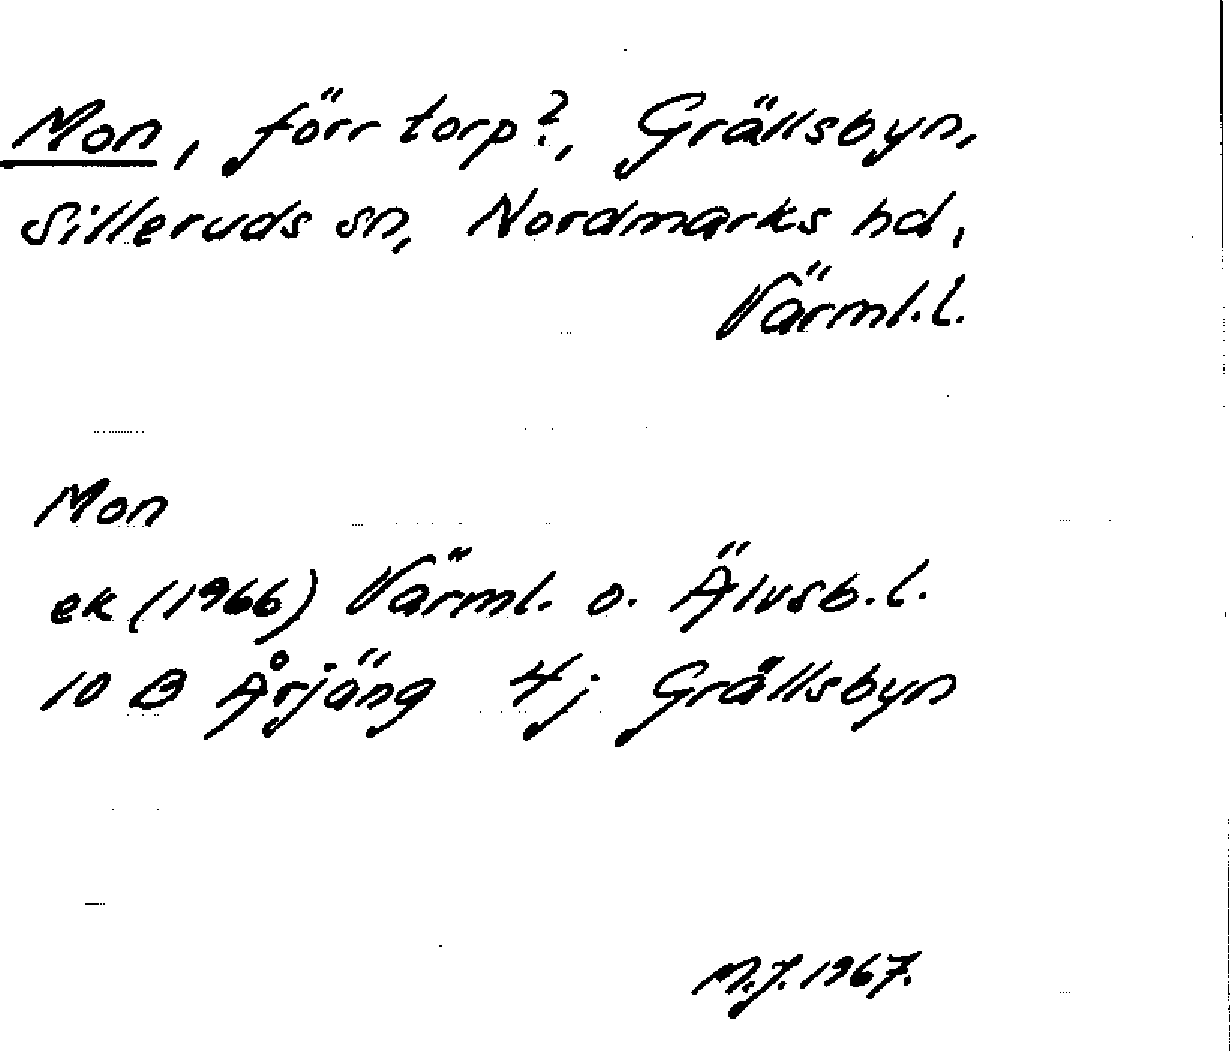 Mon, förr torp?, Grällsbyn,
Silleruds sn, Nordmarks hd,
Värml.l.
Mon
ek (1966) Värml. o. Älvsb.l.
10 B Årjäng 4j Grällsbyn
M.J. 1967.